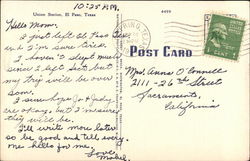 10:25 P.M.
Union Station, El Paso, Texas
Hello Mom.
I just left El Paso Texas
and I'm sure tired.
I haven't slept much
since I left but
my trip will be over
soon.
Jo & Judy
are okay, but I
they will be.
I'll write more later
so be good and tell every
one hello for me.
Love
Mabel.
POST CARD
Mrs. Anna O'Connell
2111-26th Street
Sacramento,
California